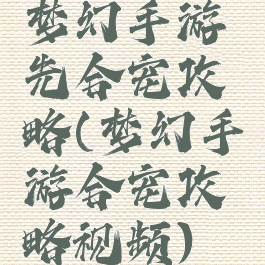 梦幻手游
先合宠攻
略(梦幻手
游合宠攻
略视频)